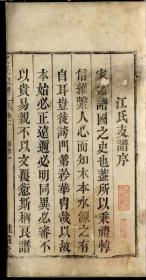 江氏支譜序
家之譜國之史也蓋所以秉禮惇
信維繫人心而知木本水源之有
自耳豈徒誇門第矜華胄哉以故
本始必正遠邇必明同異必審不
以貴易親不以文襲愆斯稱良譜